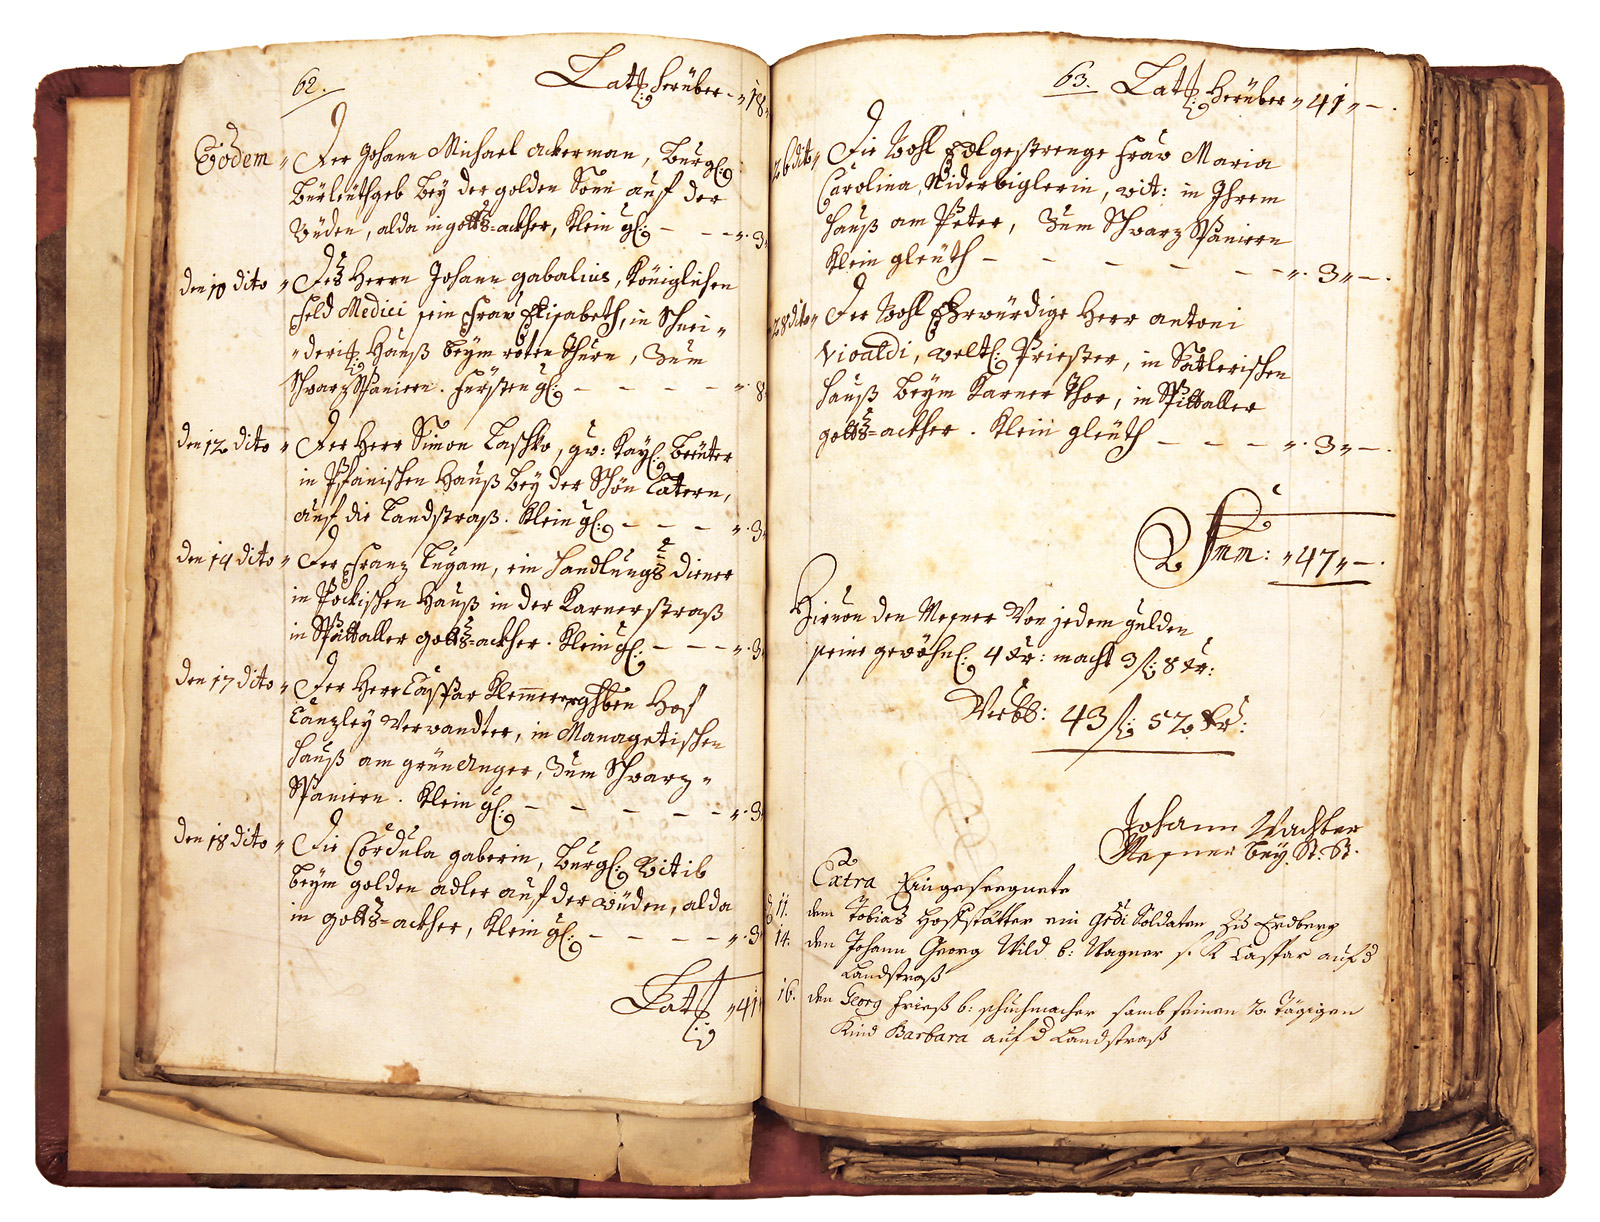 62. Lat: herüber „ 18 „
Eodem „ Der Johann Michael Ackerman, Burgl:
Bürleüthgeb bey der golden Sonn auf der
Wüden, alda in gotts=ackher, Klein gl: — — — „ . 3 „
den 10 dito „ Des Herrn Johann Gabalius, Königlichen
Feld Medici sein Frau Elisabeth, in Schnei „
„ derit: Hauß beÿm roten Thurn, Zum
Schwarz Spaniern. Fürsten gl: — — — — „ . 8
den 12 dito „ Der Herr Simon Laschko, gw: Kayl: Breüter
in Pfanischen Hauß beÿ der Schön Latern,
auf die Landstraß. Klein gl: — — — „ . 3 „
den 14 dito „ Der Franz Lugam, ein Handlungs Diener
in Pockischen Hauß in der Karnerstraß
in Spittaller gotts=ackher. Klein gl: — — — „ . 3 „
den 17 dito „ Der Herr Caspar Hof
Canzley Verwandter, in Managetischen
Hauß am grün Anger, Zum Schwarz „
Spaniern. Klein gl: — — — — „ . 3
den 18 dito „ Die Cordula Gaberin, burgl: Witib
beÿm golden adler auf der Wüden, alda
in gotts=ackher, Klein gl: — — — — „ . 3
Lat: „ 41 „
63. Lat: Herüber „ 41 „ — .
26 dito „ Die Wohl Edlgestrenge Frau Maria
Carolina, Niderbiglerin, wit: in Ihrem
Hauß am Peter, Zum Schwarz Spaniern
Klein gleüth — — — — — — „ . 3 „ — .
28 dito „ Der Wohl Ehrwürdige Herr Antoni
Vivaldi, weltl: Priester, in Satlerischen
Hauß beÿm Karner Thor, in Spittaller
gotts=ackher. Klein gleüth — — — „ . 3 „ — .
Sum: „ 47 „ — .
Hiruon den Mesner Von jedem gulden
seine gewöhnl: 4 Xr: macht 3 fl: 8 Xr:
Verbb: 43 fl: 52 Xr:
Johann Wachter
Mesner beÿ St: St.
Extra Eingeseegnete
11. dem Tobias Hochstätter ein Soldaten Zu Erdberg
14. den Johann Georg Wild b: Wagner K Caspar auf d
Landstraß
16. den Georg Frieß b: schuhmacher samb seinen 2 Tägigen
Kind Barbara auf d Landstraß